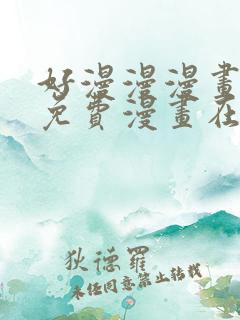 好漫漫漫畫
免費漫畫在
狄德羅
未经同意禁止转载